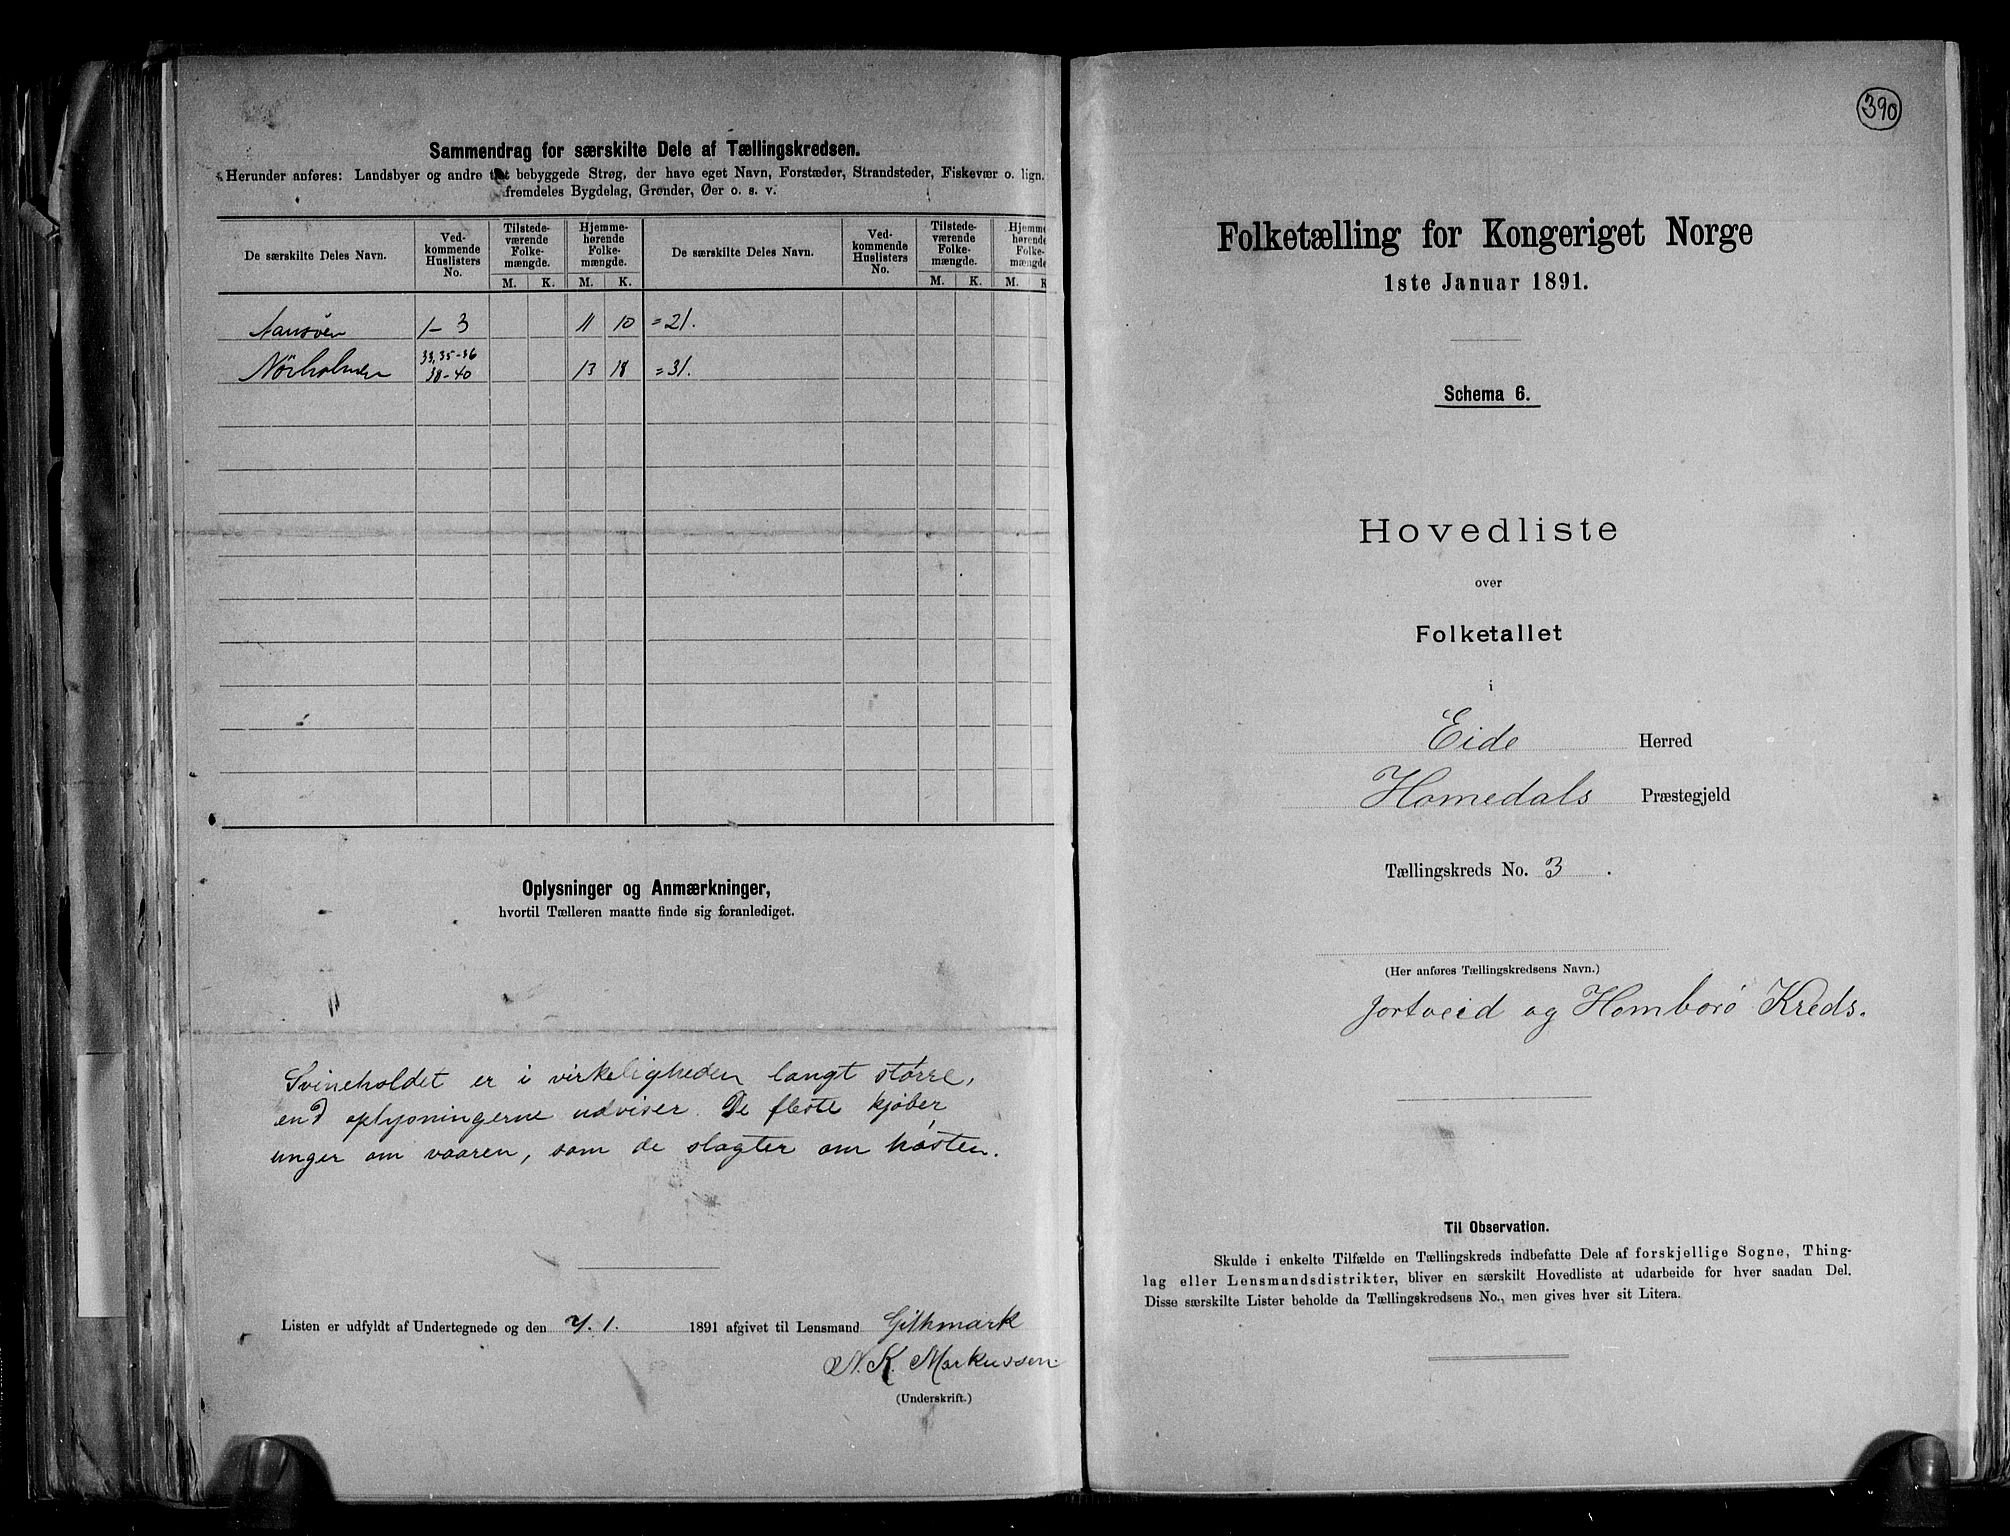 Sammendrag for særskilte Dele af Tællingskredsen.
Herunder anføres: Landsbyer og andre tæt bebyggede Strøg, der have eget Navn, Forstæder, Strandsteder, Fiskevær o. lign.
fremdeles Bygdelag, Grender, Øer o. s. v.
De særskilte Deles Navn.
Ved-
kommende
Huslisters
No.
Tilstede-
værende
Folke-
mængde.
Hjemme-
hørende
Folke-
mængde.
De særskilte Deles Navn.
Ved-
kommende
Huslisters
No.
Tilstede-
værende
Folke-
mængde.
Hjemme-
hørende
Folke-
mængde
M. K. M. K. M. K. M. K
1-3 11 10 =21.
Nörholmen 33, 35-36 13 18 =31.
38-40
Oplysninger og Anmærkninger,
hvortil Tælleren maatte finde sig foranlediget.
Svineholdet er i virkeligheden langt större,
end oplysningerne udviser. De fleste kjøber
unger om vaaren, som de slagter om hösten.
Listen er udfyldt af Undertegnede og den 1891 afgivet til Lensmand Githmark
N. K. Markussen
(Underskrift.)
390
Folketælling for Kongeriget Norge
1ste Januar 1891.
Schema 6.
Hovedliste
over
Folketallet
i
Eide Herred
Homedals Præstegjeld
Tællingskreds No. 3.
(Her anføres Tællingskredsens Navn.)
Jortveid og Homborö Kreds.
Til Observation.
Skulde i enkelte Tilfælde en Tællingskreds indbefatte Dele af forskjellige Sogne, Thing-
lag eller Lensmandsdistrikter, bliver en særskilt Hovedliste at udarbeide for hver saadan Del.
Disse særskilte Lister beholde da Tællingskredsens No., men gives hver sit Litera.